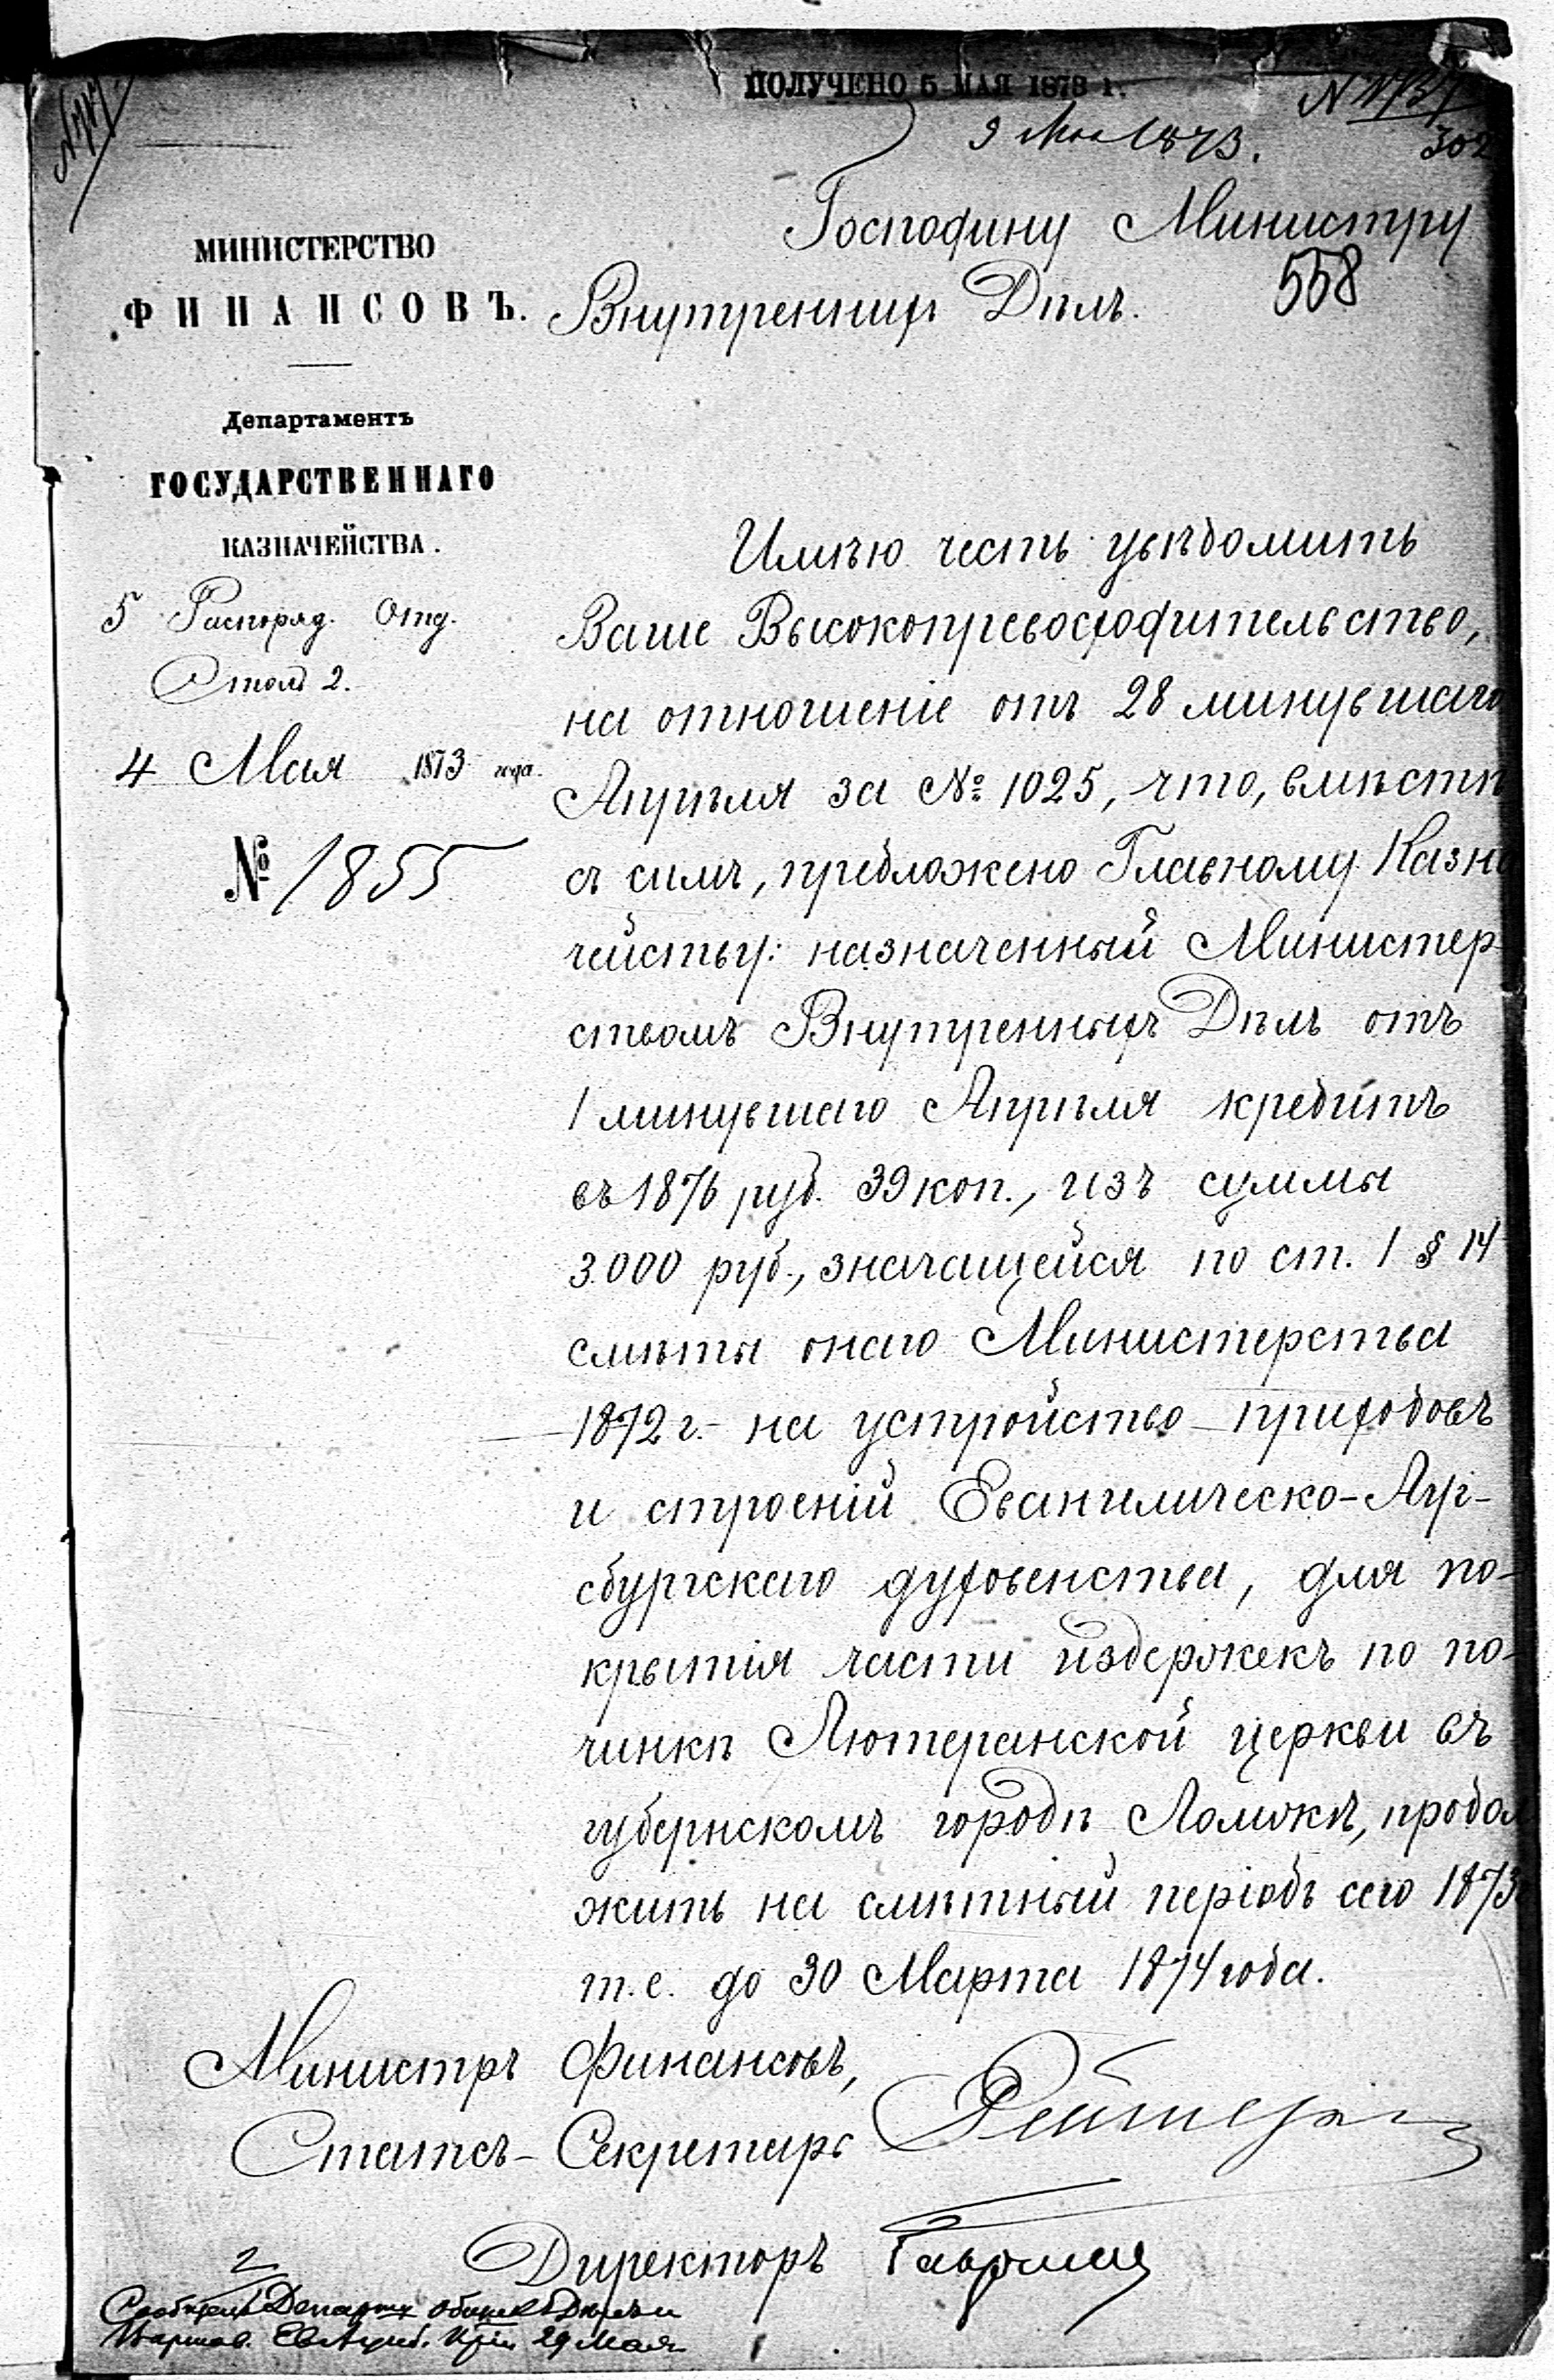 ПОЛУЧЕНО 5 МАЯ 1873 г.
9 Мая 1873.
302
Господину Министру
Внутреннихъ Дѣлъ.
558
МИНИСТЕРСТВО
ФИНАНСОВЪ.
Департаментъ
ГОСУДАРСТВЕННАГО
КАЗНАЧЕЙСТВА.
5 Распоряд. Отд.
Столъ 2.
4 Мая 1873 года.
№ 1855
Имѣю честь увѣдомить
Ваше Высокопревосходительство,
на отношеніе отъ 28 минувшаго
Апрѣля за № 1025, что, вмѣстѣ
съ симъ, предложено Главному Казна
чейству: назначенный Министер-
ствомъ Внутреннихъ Дѣлъ отъ
1 минувшаго Апрѣля кредитъ
въ 1876 руб. 39 коп., изъ суммы
3.000 руб., значащейся по ст. 1 § 14
смѣты онаго Министерства
1872 г. на устройство приходовъ
и строеній Евангелическо-Ауг-
сбургскаго духовенства, для по-
крытія части издержекъ по по-
чинкѣ Лютеранской церкви въ
губернскомъ городѣ Ломжѣ, продол
жить на смѣтный періодъ сего 1873
т.е. до 30 Марта 1874 года.
Министръ Финансовъ,
Статсъ-Секретарь Рейтернъ
Директоръ
2
Департ. Общихъ Дѣлъ и
Варшав. Ев. Аугсб. 29 Мая